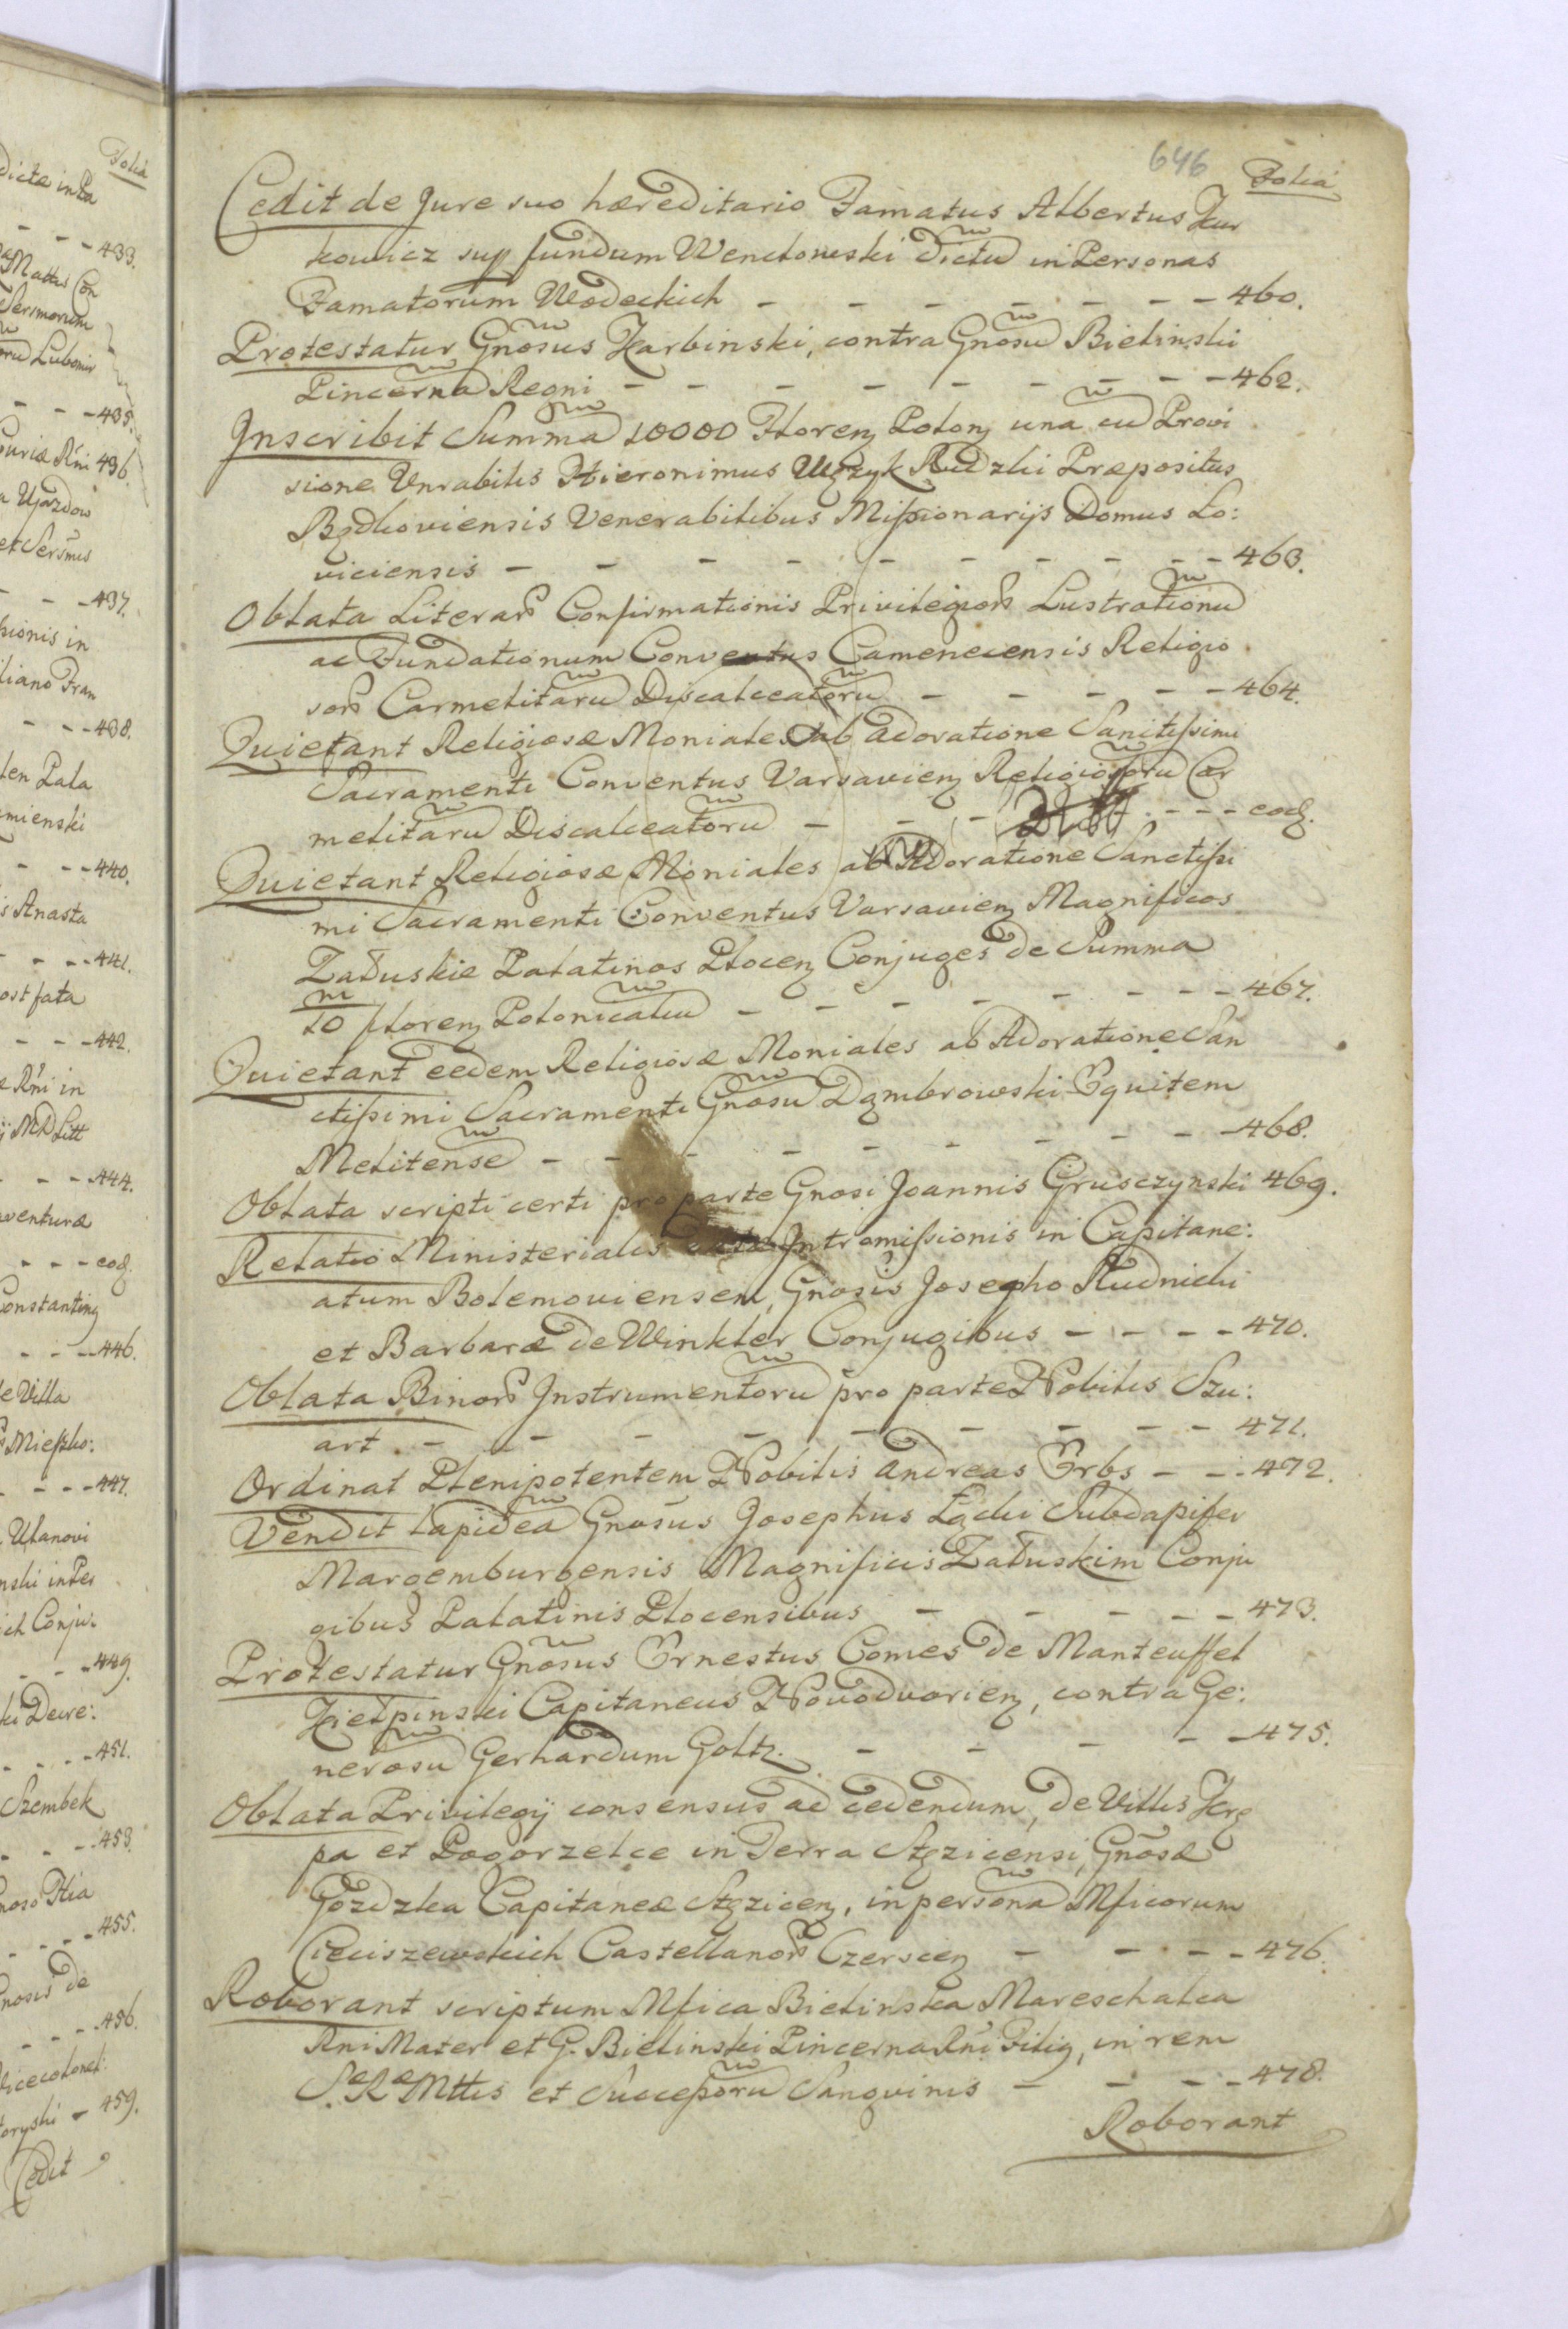 646
Folia
Cedit de Jure suo hæreditario Famatus Albertus Kur
kowicz sup fundum Wendowski dictu in Personas
Famatorum Wodeckich - - - - - - - 460.
Protestatur Gnosus Karbinski, contra Gnosu Bielinski
Pincerna Regni - - - - - - - - - 462.
Inscribit Summa 10000 Floren Polon una cu Provi
sione Vnrabilis Hieronimus Rudzki Præpositus
Bądkoviensis Venerabilibus Missionarijs Domus Lo:
viciensis - - - - - - - - - 463.
Oblata Literar Confirmationis Privilegior Lustrationu
ac Fundationum Conventus Camenecensis Religio
sor Carmelitaru Discalceatoru - - - - - 464.
Quietant Religiosæ Moniales ab adoratione Sanctissimi
Sacramenti Conventus Varsavien Religiosoru Car
melitaru Discalceatoru - - - - - - eod.
Quietant Religiosæ Moniales ab Adoratione Sanctissi
mi Sacramenti Conventus Varsavien Magnificos
Załuskie Palatinos Plocen Conjuges de Summa
10 m floren Polonicaliu - - - - - - - 467.
Quietant eedem Religiosæ Moniales ab Adoratione San
ctissimi Sacramenti Gnosu Dąmbrowski Equitem
Melitense - - - - - - - - - 468.
Oblata scripti certi pro parte Gnosi Joannis Grusczynski 469.
Relatio Ministerialis Intromissionis in Capitane:
atum Bolemoviensem, Gnosis Josepho Rudnicki
et Barbaræ de Winkler Conjugibus - - - - 470.
Oblata Binor Instrumentoru pro parte Nobilis Szu:
art - - - - - - - - - 471.
Ordinat Plenipotentem Nobilis Andreas Erbs - - 472.
Vendit lapidea Gnosus Josephus Łącki Subdapifer
Margemburgensis Magnificis Załuskim Conju
gibus Palatinis Plocensibus - - - - - 473.
Protestatur Gnosus Ernestus Comes de Manteuffel
Kiełpinski Capitaneus Novodvorien, contra Ge:
nerosu Gerhardum Goltz. - - - - - 475.
Oblata Privilegij consensus ad cedendum, de Villis Kęp
pa et Pogorzelce in Terra Stęzicensi, Gnosæ
Gozdzka Capitaneæ Stęzicen, in persona Mficorum
Cieciszewskich Castellanor Czerscen - - - - 476.
Roborant scriptum Mfica Bielinska Mareschalca
Rni Mater et G. Bielinski Pincerna Rni Filig, in rem
S. R. Mttis et Successoru Sangvinis - - - - 478.
Roborant